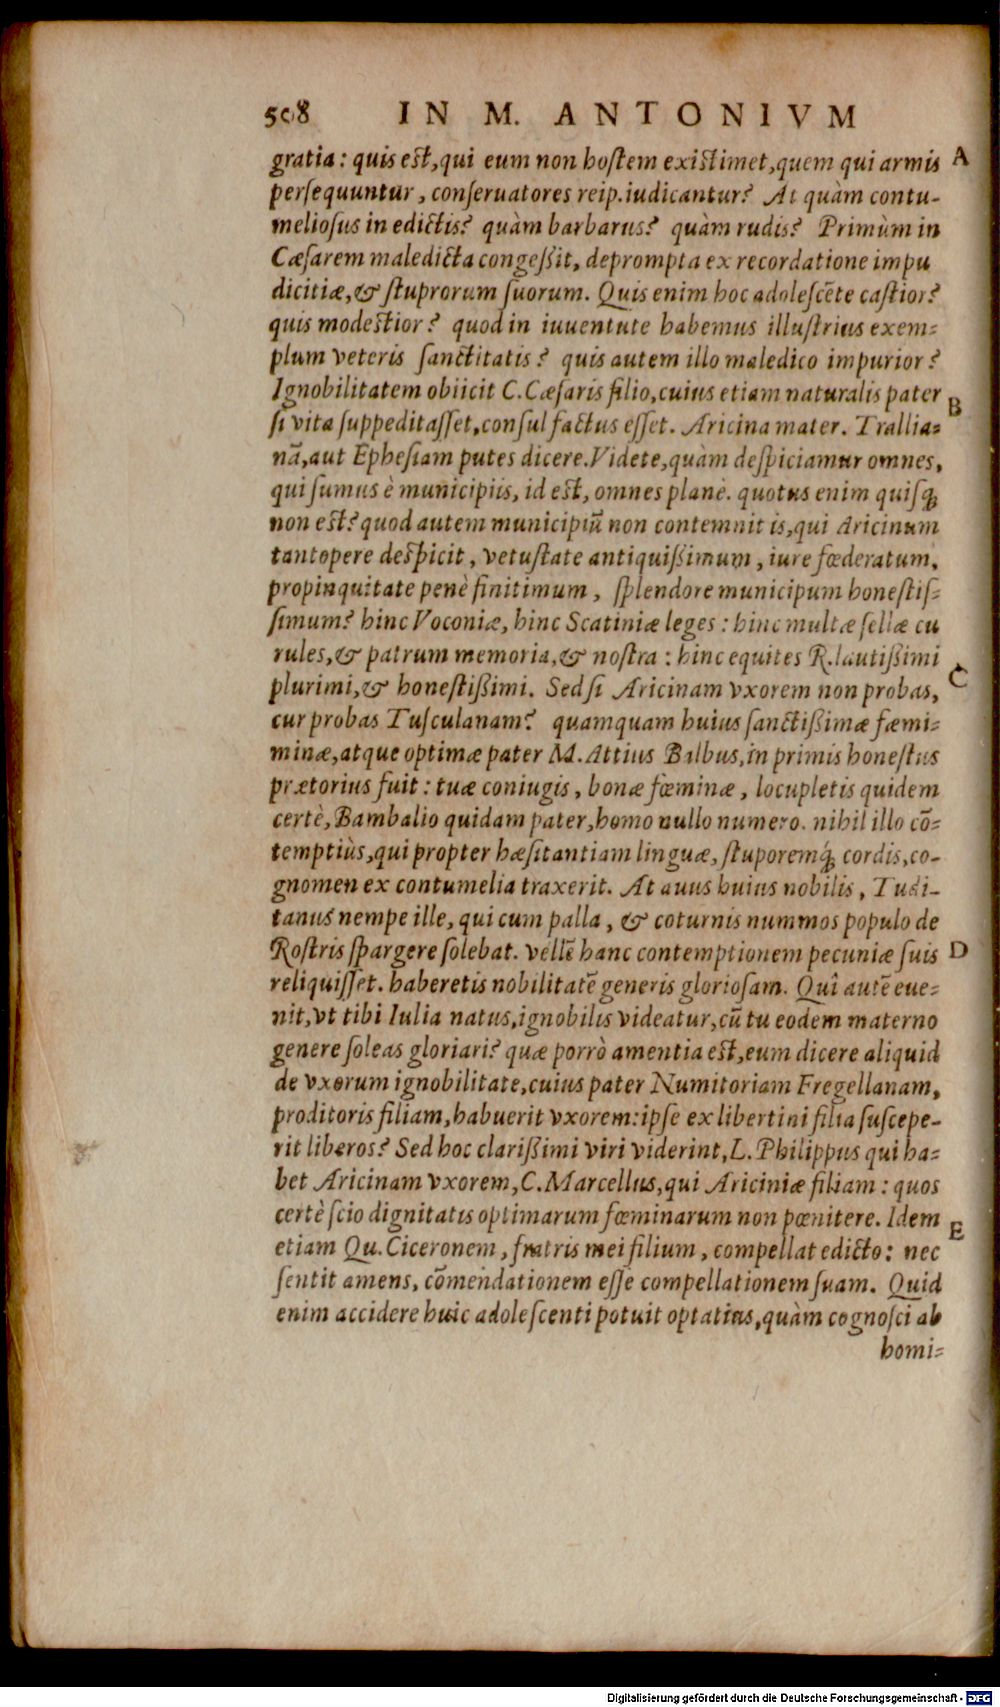 508 IN M. ANTONIVM
gratia: quis est, qui eum non hostem existimet, quem qui armis A
persequuntur, conseruatores reip. iudicantur? At quàm contu-
meliosus in edictis? quàm barbarus? quàm rudis? Primùm in
Cæsarem maledicta congeßit, deprompta ex recordatione impu
dicitiæ, & stuprorum suorum. Quis enim hoc adolescẽte castior?
quis modestior? quod in iuuentute habemus illustrius exem-
plum veteris sanctitatis? quis autem illo maledico impurior?
Ignobilitatem obiicit C. Cæsaris filio, cuius etiam naturalis pater B
si vita suppeditasset, consul factus esset. Aricina mater. Trallia-
nã, aut Ephesiam putes dicere. Videte, quàm despiciamur omnes,
qui sumus è municipiis, id est, omnes planè. quotus enim quisq́;
non est? quod autem municipiũ non contemnit is, qui Aricinum
tantopere despicit, vetustate antiquißimum, iure fœderatum,
propinquitate penè finitimum, splendore municipum honestis-
simum? hinc Voconiæ, hinc Scatiniæ leges: hinc multæ sellæ cu
rules, & patrum memoria, & nostra: hinc equites R. lautißimi
plurimi, & honestißimi. Sed si Aricinam vxorem non probas, C
cur probas Tusculanam? quamquam huius sanctißimæ fœmi-
minæ, atque optimæ pater M. Attius Balbus, in primis honestus
prætorius fuit: tuæ coniugis, bonæ fœminæ, locupletis quidem
certè, Bambalio quidam pater, homo nullo numero. nihil illo cõ-
temptiùs, qui propter hæsitantiam linguæ, stuporemq́; cordis, co-
gnomen ex contumelia traxerit. At auus huius nobilis, Tudi-
tanus nempe ille, qui cum palla, & coturnis nummos populo de
Rostris spargere solebat. vellẽ hanc contemptionem pecuniæ suis D
reliquisset. haberetis nobilitatẽ generis gloriosam. Quî autẽ eue-
nit, vt tibi Iulia natus, ignobilis videatur, cũ tu eodem materno
genere soleas gloriari? quæ porrò amentia est, eum dicere aliquid
de vxorum ignobilitate, cuius pater Numitoriam Fregellanam,
proditoris filiam, habuerit vxorem: ipse ex libertini filia suscepe-
rit liberos? Sed hoc clarißimi viri viderint, L. Philippus qui ha-
bet Aricinam vxorem, C. Marcellus, qui Ariciniæ filiam: quos
certè scio dignitatis optimarum fœminarum non pœnitere. Idem E
etiam Qu. Ciceronem, fratris mei filium, compellat edicto: nec
sentit amens, cõmendationem esse compellationem suam. Quid
enim accidere huic adolescenti potuit optatius, quàm cognosci ab
homi-
Digitalisierung gefördert durch die Deutsche Forschungsgemeinschaft - DFG